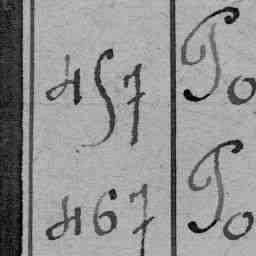 457 Po
467 Po